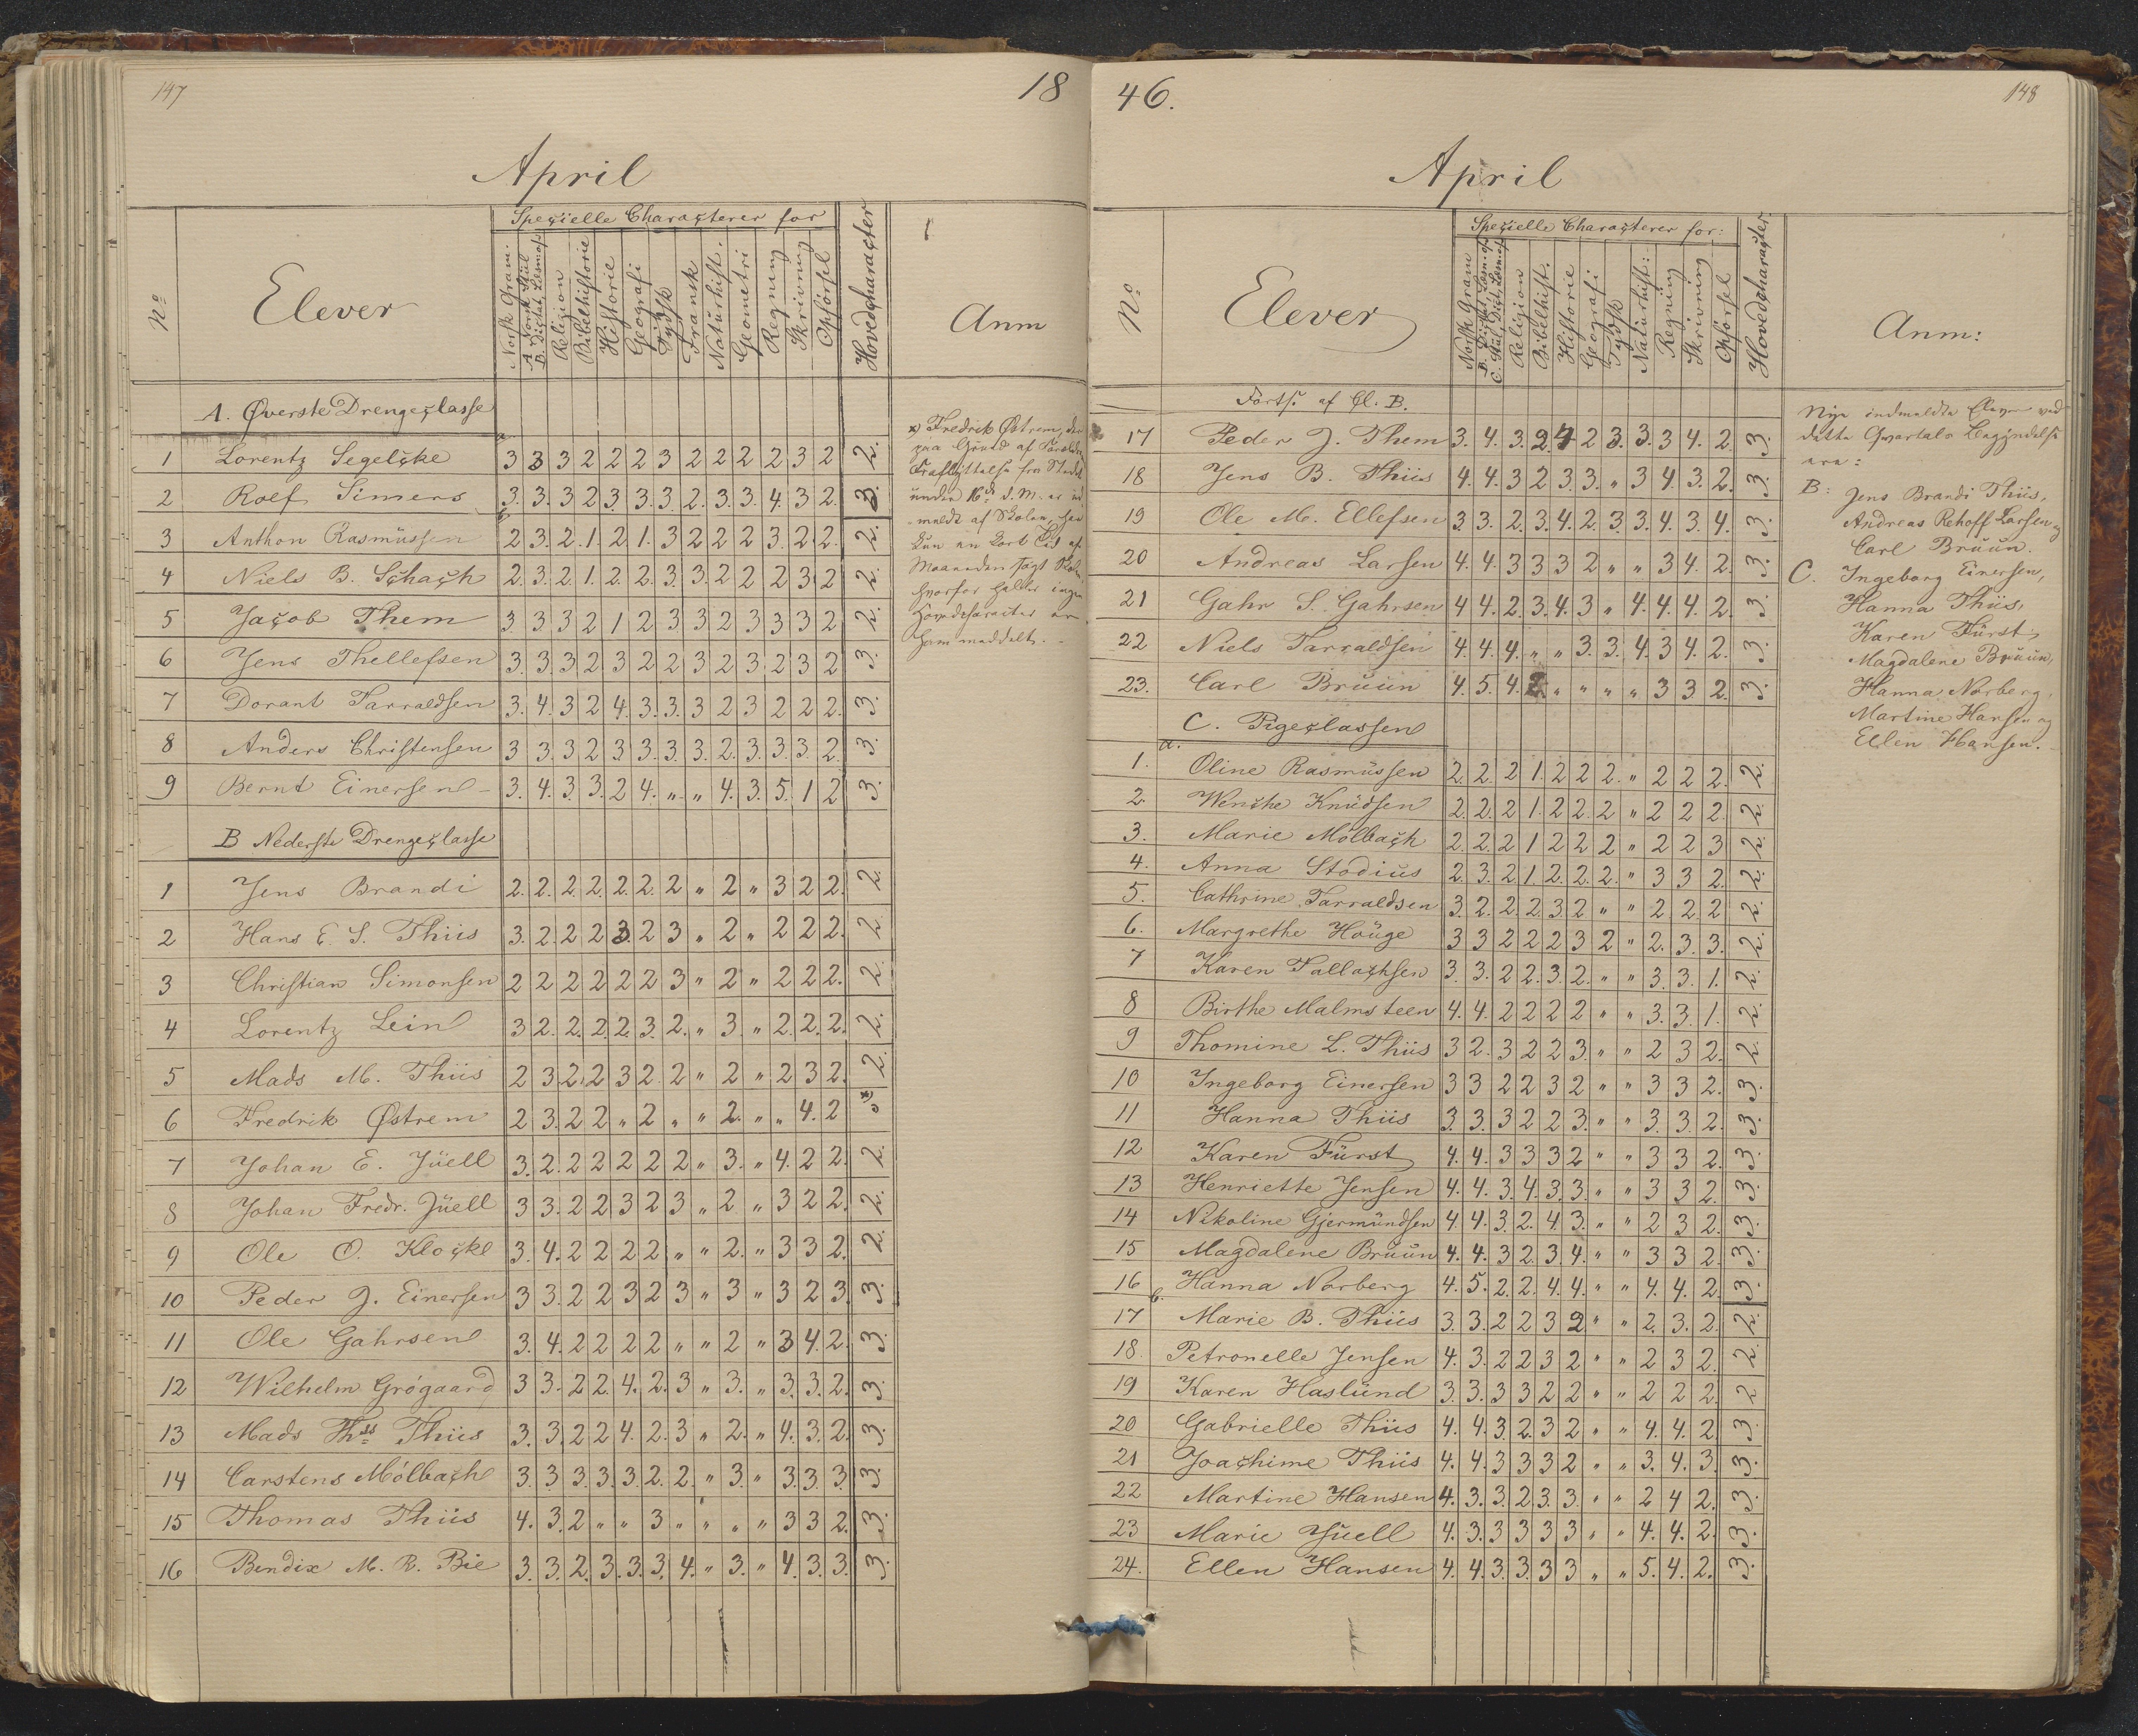 147
18
April
No
Elever
Speçielle Characterer for
Norsk Gram.
A. Norsk Stül
B. Dictat, Læsning
Religion
Bibelhistorie
Historie
Geografi
Tydsk
Fransk
Naturhist.
Geometri
Regning
Skrivning
Opførsel
Hovedcharacter
Anm
A. Øverste Drengeclasse
a.
1 Lorentz Segelcke 3 3 3 2 2 2 3 2 2 2 2 3 2 2.
2 Rolf Simers 3. 3. 3 2 3. 3. 3 2. 3. 3 4. 3 2. 3.
3 Anthon Rasmüssen 2 3. 2. 1. 2. 1. 3 2 2 2 3. 2. 2. 2.
4 Niels B. Schach 2. 3. 2. 1. 2. 2. 3. 3. 2 2 2 3 2 2.
5 Jacob Them 3. 3. 3 2 1 2 3 3 2 3 3 3 2 2.
6 Jens Thellefsen 3. 3. 3 2. 3 2 2 3 2 3 2 3 2 3.
7 Dorant Tarraldsen 3. 4. 3 2 4. 3. 3. 3 2 3 2 2 2. 3.
8 Anders Christensen 3 3. 3 2 3 3. 3. 3. 2. 3. 3. 3. 2. 3.
9 Bernt Einersen 3. 4. 3. 3. 2 4. " " 4. 3. 5. 1 2 3.
B Nederste Drengeclasse
1 Jens Brandi 2. 2. 2. 2. 2. 2. 2 " 2 " 3 2 2. 2.
2 Hans E. S. Thiis 3. 2. 2 2 3. 2 3 " 2 " 2 2 2. 2.
3 Christian Simonsen 2 2 2 2 2 2 3 " 2 " 2 2 2. 2.
4 Lorentz Lein 3 2. 2. 2. 2. 3. 2. " 3. " 2. 2. 2. 2.
5 Mads M. Thiis 2 3 2. 2 3 2. 2 " 2 " 2 3 2. 2.
6 Fredrik Østrem 2 3. 2 2 " 2 " " 2. " " 4. 2 "x)
7 Johan E. Jüell 3. 2. 2 2 2 2 2 " 3. " 4. 2 2. 2.
8 Johan Fredr. Jüell 3 3. 2 2 3 2 3 " 2 " 3 2 2. 2.
9 Ole O. Klocke 3. 4. 2 2 2 2 " " 2. " 3 3 2. 2.
10 Peder J. Einersen 3 3. 2 2 3 2 3 " 3 " 3 2 3. 3.
11 Ole Gahrsen 3. 4. 2 2 2 2 " " 2 " 3 4. 2. 3.
12 Wilhelm Grøgaard 3 3. 2 2. 4. 2. 3 " 3. " 3. 3. 2. 3.
13 Mads Thss Thiis 3. 3. 2 2 4. 2. 3 " 2. " 4. 3. 2. 3.
14 Carstens Mölbach 3. 3 3. 3. 3 2. 2. " 3. " 3. 3. 3. 3.
15 Thomas Thiis 4. 3. 2 " " 3 " " " " 3 3 2. 3.
16 Bendix M. R. Bie 3. 3. 2. 3. 3. 3. 4. " 3. " 4. 3. 3. 3.
x) Fredrik Østrem, der
paa Grund af Forældre
Fraflyttelse fra Stedet
under 16de d. M. er ud
meldt af Skolen, har
kun en kort Tid af
Maaneden søgt Skolen
hvorfor heller ingen
Hovedcaracter er
ham meddelt.
46.
148
April
No
Elever
Speçielle Characterer for:
Norsk Gram
B. Dictat, Læsning
C. Stül, Dict. Læsning
Religion
Bibelhist.
Historie
Geografi
Tydsk
Naturhist:
Regning
Skrivning
Opførsel
Hovedcharacter.
Anm:
Forts. af Cl. B.
17 Peder J. Them 3. 4. 3. 2. 4 2 3. 3. 3 4. 2. 3.
18 Jens B. Thiis 4. 4. 3 2 3 3. " 3 4. 3. 2. 3.
19 Ole M. Ellefsen 3 3. 2. 3. 4. 2. 3 3. 4. 3. 4. 3.
20 Andreas Larsen 4. 4. 3 3 3 2 " " 3 4. 2. 3.
21 Gahr S. Gahrsen 4 4. 2. 3. 4. 3 " 4. 4. 4. 2. 3.
22 Niels Tarraldsen 4. 4. 4. " " 3. 3. 4. 3 4. 2. 3.
23. Carl Brüün 4. 5. 4. 2. " " " " 3 3 2. 3.
C. Pigeclassen
a.
1. Oline Rasmüssen 2. 2. 2 1. 2 2 2. " 2 2 2. 2.
2. Wenche Knüdsen 2. 2. 2 1. 2 2. 2 " 2 2 2. 2.
3. Marie Mölbach 2. 2. 2 1 2 2 2 " 2 2 3 2.
4. Anna Stodius 2. 3. 2 1. 2. 2. 2. " 3 3 2. 2.
5. Cathrine Tarraldsen 3. 2. 2. 2. 3. 2 " " 2. 2. 2 2.
6. Margrethe Houge 3 3 2 2 2 3 2 " 2. 3. 3. 2.
7 Karen Tallachsen 3. 3. 2 2. 3. 2. " " 3. 3. 1. 2.
8 Birthe Malmsteen 4. 4. 2 2 2 2 " " 3. 3. 1. 2.
9 Thomine L. Thiis 3 2. 3 2 2 3. " " 2 3 2. 2.
10 Ingeborg Einersen 3 3 2 2 3 2 " " 3 3 2. 3.
11 Hanna Thiis 3. 3. 3 2 2 3. " " 3. 3. 2. 3.
12 Karen Fürst 4. 4. 3 3 3 2 " " 3 3 2. 3.
13 Henriette Jensen 4. 4. 3. 4. 3. 3. " " 3 3 2. 3.
14 Nikoline Gjermündsen 4. 4. 3. 2. 4. 3. " " 2 3 2. 3.
15 Magdalene Brüün 4. 4. 3 2. 3. 4. " " 3 3 2. 3.
16 Hanna Norberg 4. 5. 2. 2. 4. 4. " " 4. 4. 2. 3.
b.
17 Marie B. Thiis 3. 3. 2 2 3 2 " " 2. 3. 2. 2.
18. Petronelle Jensen 4. 3. 2 2 3 2 " " 2 3 2. 2.
19 Karen Haslünd 3. 3. 3 3 2 2 " " 2 2 2. 2
20 Gabrielle Thiis 4. 4. 3. 2. 3. 2 " " 4. 4. 2. 3.
21 Joachime Thiis 4. 4. 3 3 3 2 " " 3. 4. 3. 3.
22 Martine Hansen 4. 3. 3. 2 3. 3. " " 2 4 2. 3.
23 Marie Jüell 4. 3. 3 3 3 3 " " 4. 4. 2. 3.
24. Ellen Hansen 4. 4. 3. 3. 3 3 " " 5. 4. 2. 3.
Nye indmeldte Elever ved
dette Qvartals Begyndelse
ere:
B: Jens Brandi Thiis,
Andreas Rehoff Larsen og
Carl Brüün.
C. Ingeborg Einersen,
Hanna Thiis,
Karen Fürst,
Magdalene Brüün,
Hanna Norberg,
Martine Hansen og
Ellen Hansen.